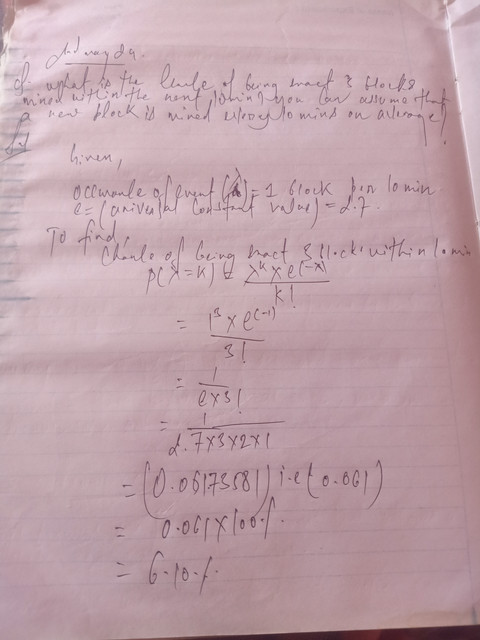 Q. what is the chance of being exact 3 blocks
mined within the next 10min? you can assume that
a new block is mined every 10 mins on average?
Sol
Given,
occurance of event (λ) = 1 block per 10 min.
e = (universal constant value) = 2.7.
To find,
Chance of being exact 3 blocks within 10 min
P(X = K) = λ^k x e^(-λ) / k!
= 1^3 x e^(-1) / 3!
= 1 / e x 3!
= 1 / 2.7 x 3 x 2 x 1
= (0.06173581) i.e (0.061)
= 0.061 x 100 %.
= 6.10 %.